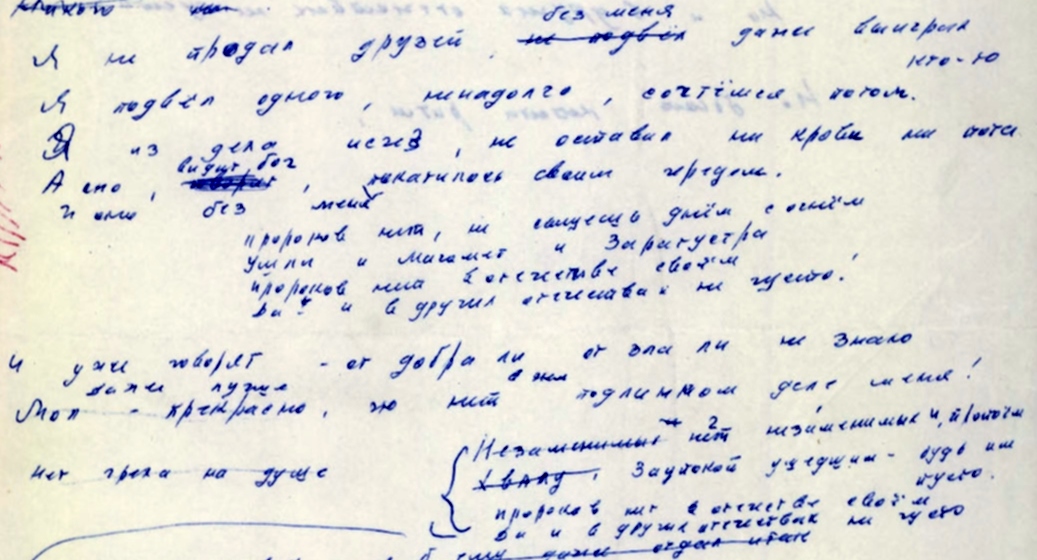 без меня
Я не продал друзей, не подвёл даже выиграл
кто-то
Я подвёл одного, ненадолго, сочтёмся потом.
Я из дела исчез, не оставил ни крови ни пота
видит бог
А оно, , покатилось своим чередом.
И оно без меня
Пророков нет, не сыщешь днём с огнём
Ушли и Магомет и Заратустра
Пророков нет в отечестве своём
Да и в других отечествах не густо!
И уже говорят - от добра ли от зла ли не знаю
даже лучше в этом
Мол - прекрасно, что нет подлинном деле меня!
Незаменимых нет 2 незаменимых и, пропоём
нет греха на душе
Заупокой ушедшим - будь им
пусто.
пророков нет в отечестве своём
Да и в других отечествах не густо
даже отдал